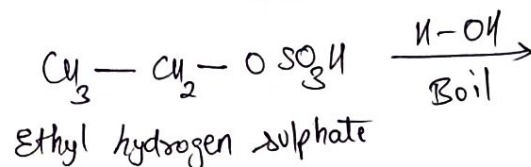 CH3 — CH2 — O SO3H H-OH
Boil
Ethyl hydrogen sulphate